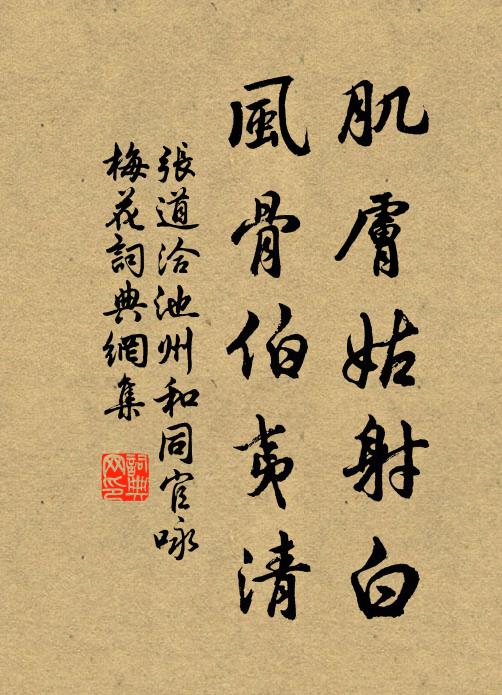 肌膚姑射白
風骨伯夷清
張道洽池州和同官咏
梅花詞典網集
詞典
网印